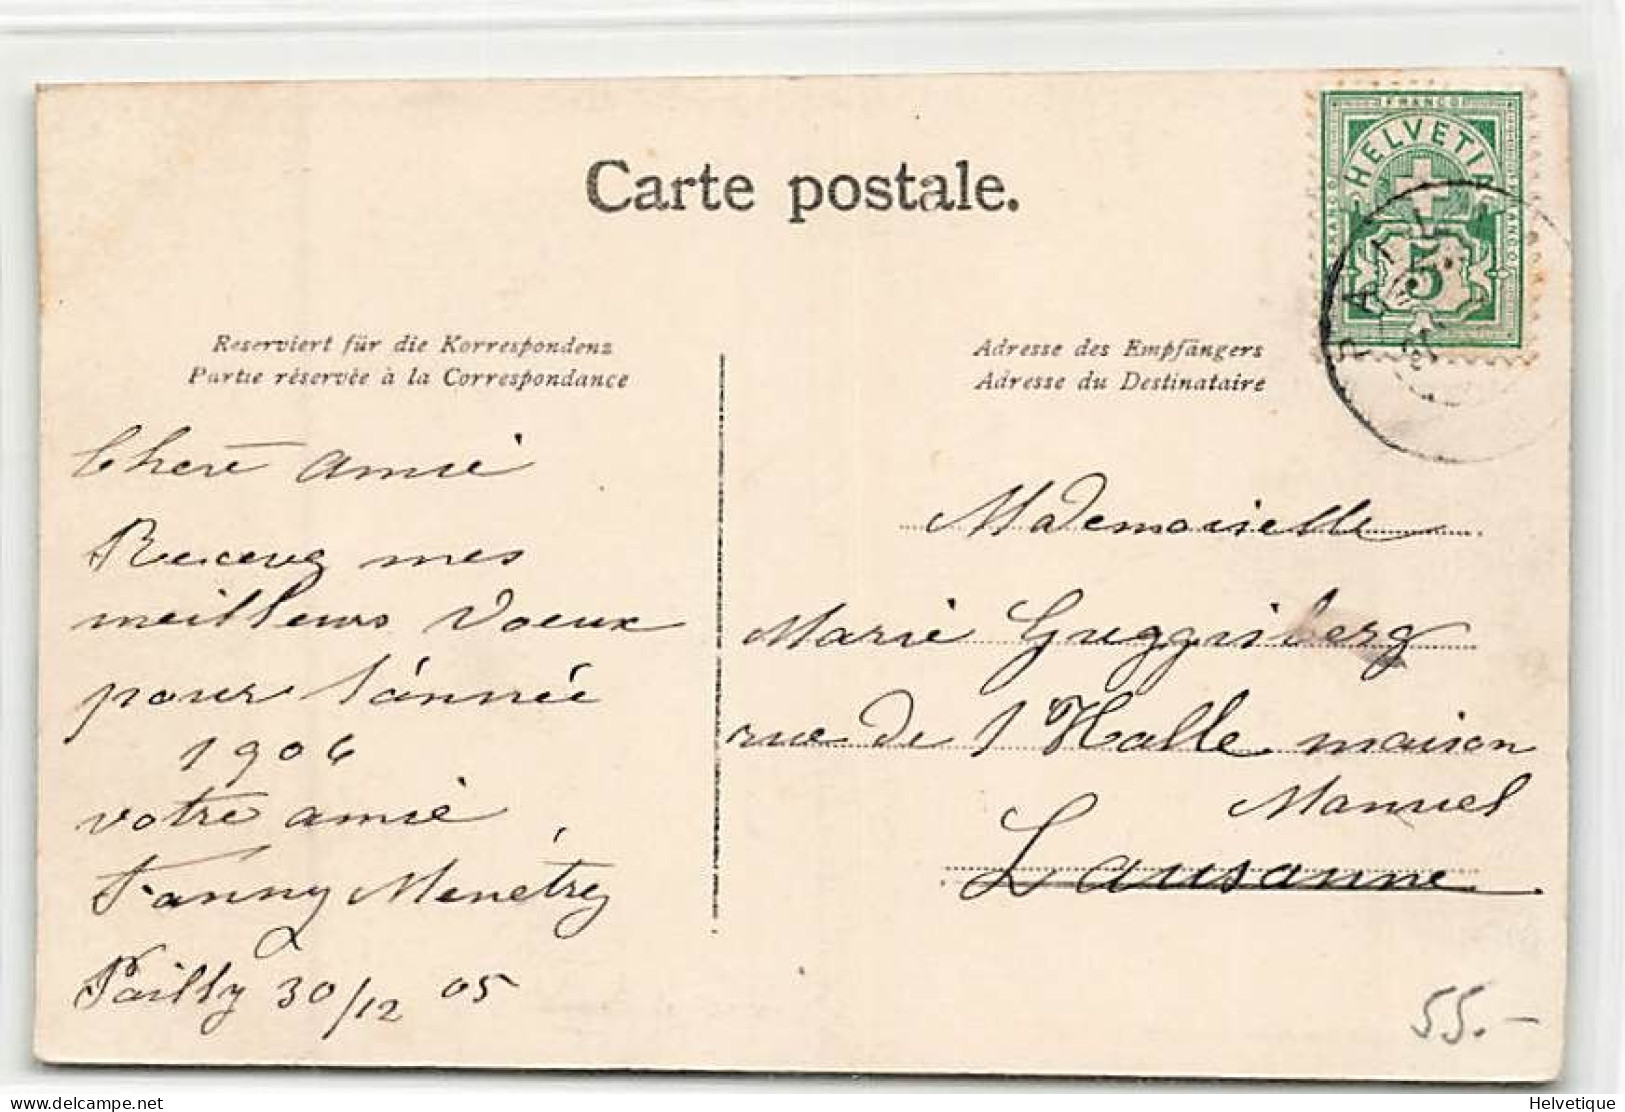 Carte postale.
FRANCO
HELVETIA
FRANCO
FRANCO
5
PAILLY
Reserviert für die Korrespondenz
Partie réservée à la Correspondance
Adresse des Empfängers
Adresse du Destinataire
Chère amie
Recevez mes
meilleurs voeux
pour l'année
1906
votre amie
Fanny Menétrey
Pailly 30/12 05
Mademoiselle
Marie Guggisberg
rue de l'Halle maison
Manuel
Lausanne
55.-
delcampe.net
Helvetique